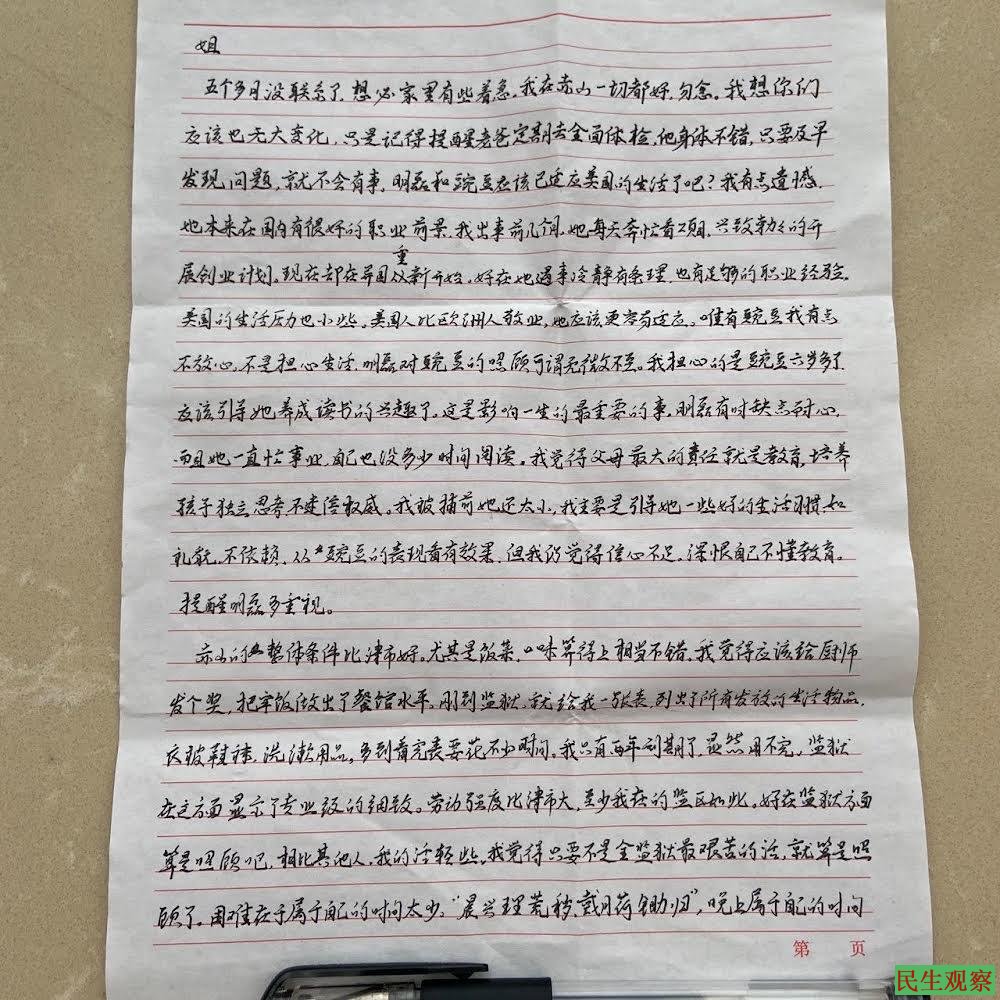 姐
五个多月没联系了，想必家里有些着急。我在赤山一切都好，勿念。我想你们
应该也无大变化，只是记得提醒老爸定期去全面体检，他身体不错，只要及早
发现问题，就不会有事，明磊和豌豆应该已适应美国的生活了吧？我有点遗憾，
她本来在国内有很好的职业前景，我出事前几个月，她每天奔忙看项目，兴致勃勃的开
展创业计划。现在却在异国从重新开始。好在她遇事冷静有条理，也有足够的职业经验。
美国的生活压力也小些。美国人比欧洲人敬业，她应该更容易适应。唯有豌豆我有点
不放心，不是担心生活，明磊对豌豆的照顾可谓无微不至。我担心的是豌豆六岁多了，
应该引导她养成读书的兴趣了。这是影响一生的最重要的事，明磊有时缺点耐心，
而且她一直忙事业，自己也没多少时间阅读。我觉得父母最大的责任就是教育，培养
孩子独立思考，不迷信权威。我被捕前她还太小，我主要是引导她一些好的生活习惯，如
礼貌，不依赖，从豌豆的表现看有效果，但我仍觉得信心不足，深恨自己不懂教育。
提醒明磊多重视。
赤山的整体条件比津市好，尤其是饭菜，口味算得上相当不错，我觉得应该给厨师
发个奖，把牢饭做出了餐馆水平。刚到监狱，就给我一张表，列出了所有发放的生活物品，
衣被鞋袜，洗漱用品，多到看完表要花不少时间。我只有两年刑期了，显然用不完，监狱
在这方面显示了专业级的细致。劳动强度比津市大，至少我在的监区如此。好在监狱方面
算是照顾吧，相比其他人，我的活轻些。我觉得只要不是全监狱最艰苦的活，就算是照
顾了。困难在于属于自己的时间太少，“晨兴理荒秽，戴月荷锄归”，晚上属于自己的时间
第 页
民生观察